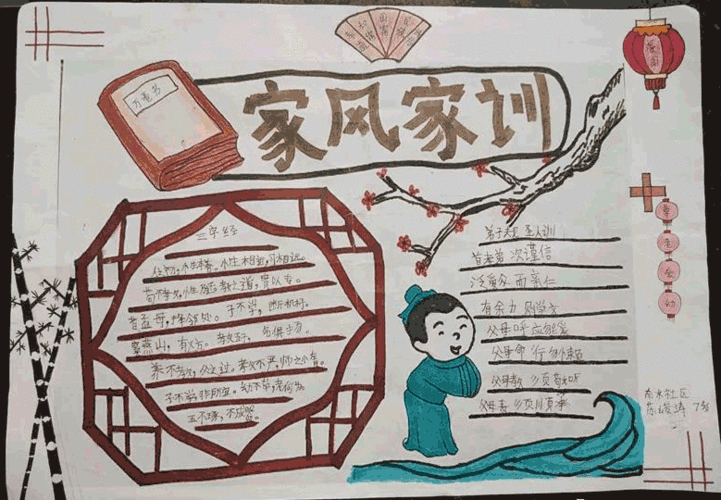 家风家训
三字经
人之初,性本善,性相近,习相远。
苟不教,性乃迁,教之道,贵以专。
昔孟母,择邻处。子不学,断机杼。
窦燕山,有义方。教五子,名俱扬。
养不教,父之过,教不严,师之惰。
子不学,非所宜。幼不学,老何为
玉不琢,不成器。
弟子规 圣人训
首孝弟 次谨信
泛爱众 而亲仁
有余力 则学文
父母呼 应勿缓
父母命 行勿懒
父母教 须敬听
父母责 须顺承
尊老爱幼
南水社区
7岁